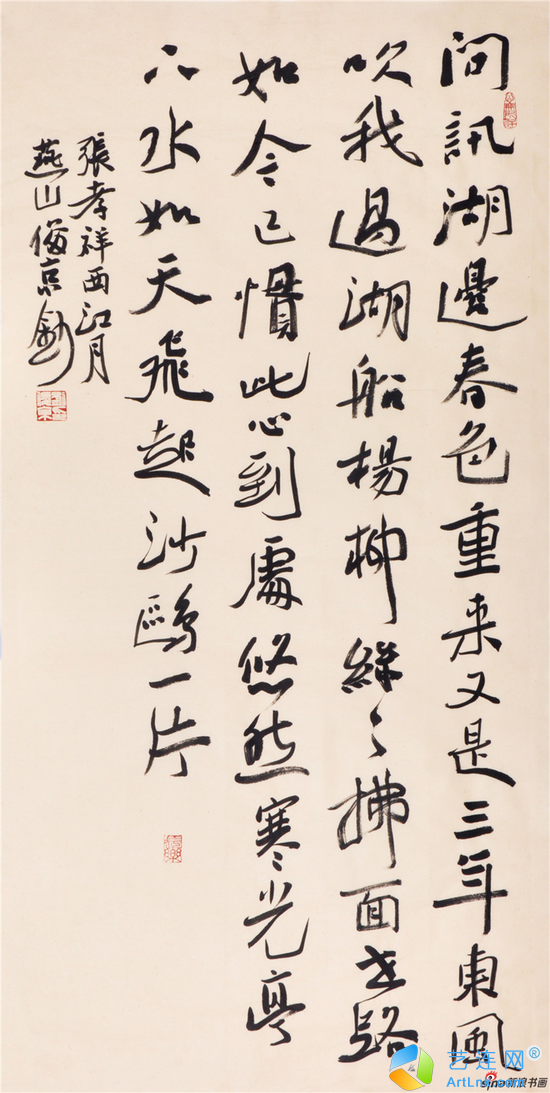 問訊湖邊春色重来又是三年東風
吹我過湖船楊柳絲〻拂面世路
如今已慣此心到處悠然寒光亭
下水如天飛起沙鷗一片
張孝祥西江月
燕山俊京
艺连网®
sina新浪书画